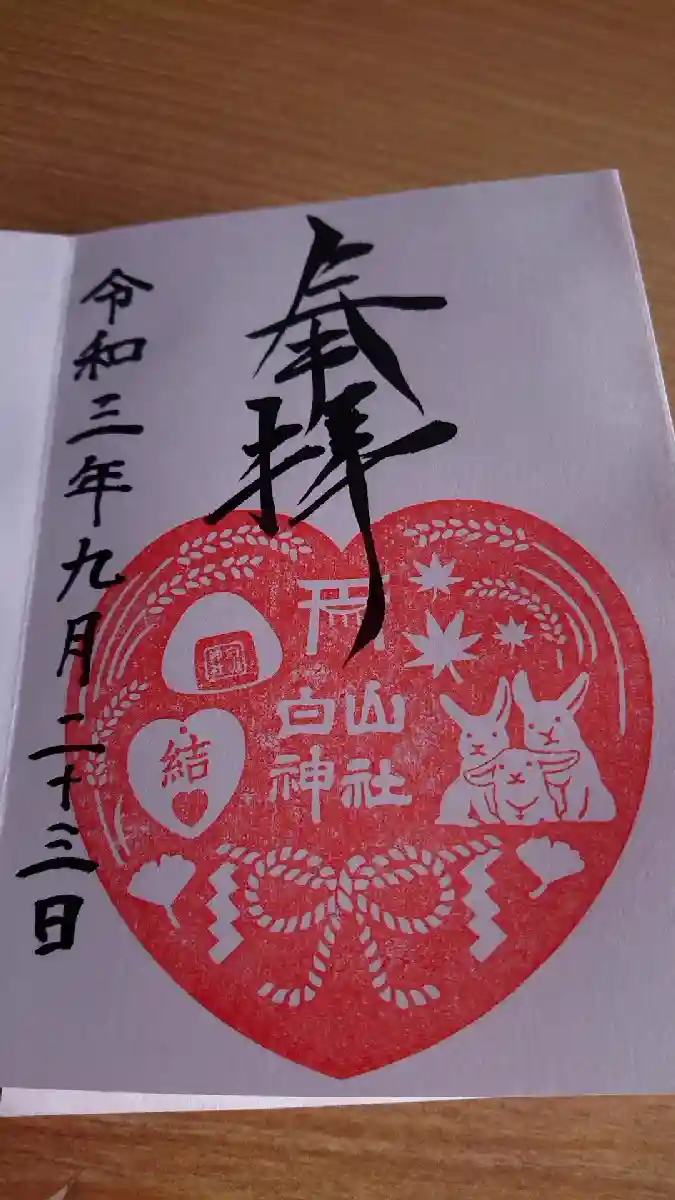 奉拝
白山
神社
結
令和三年九月二十三日